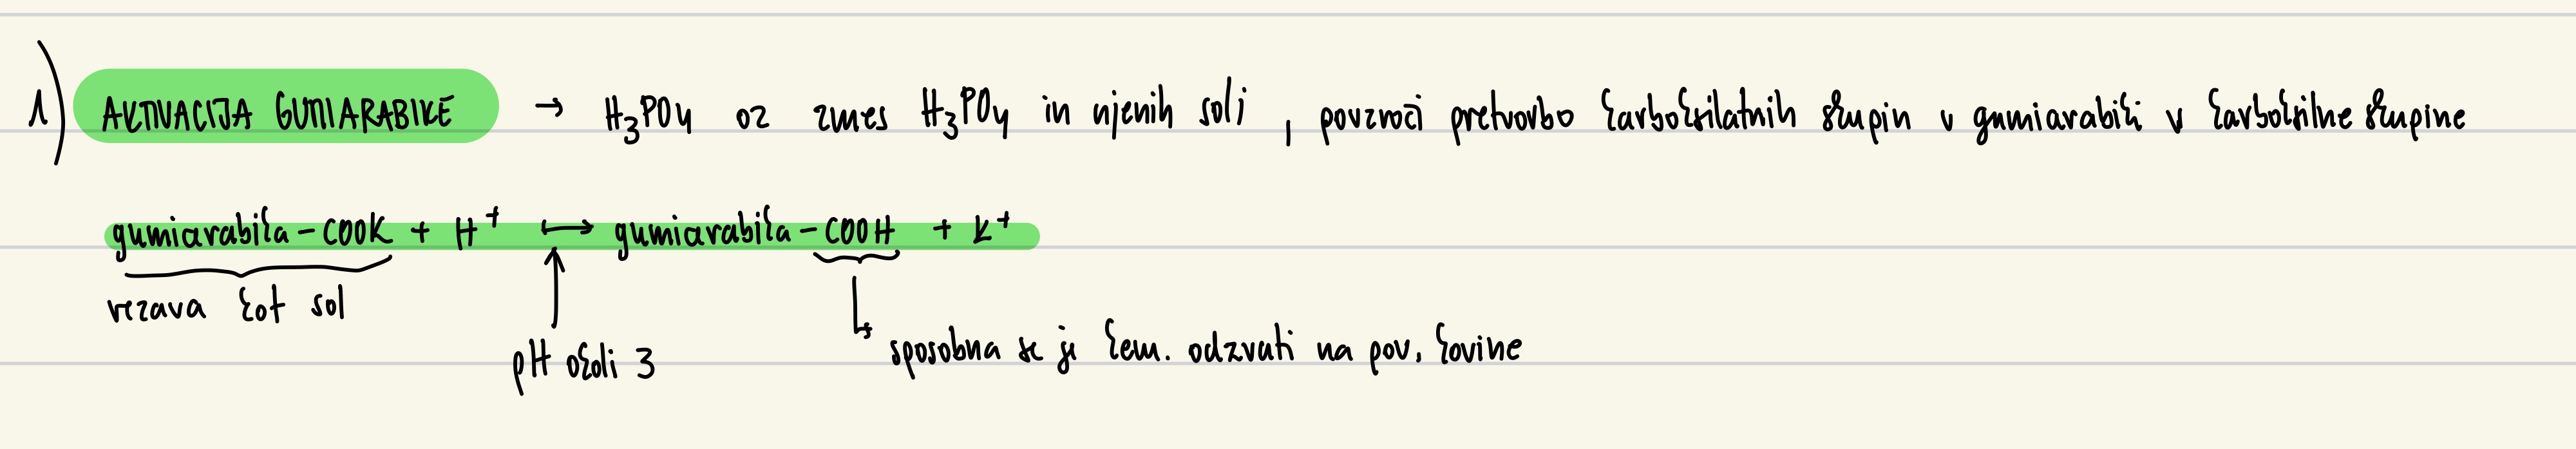 1) AKTIVACIJA GUMIARABIKE → H₃PO₄ oz zmes H₃PO₄ in njenih soli, povzroči pretvorbo karboksilatnih skupin v gumiarabiki v karboksilne skupine
gumiarabika-COOK + H⁺ ↔ gumiarabika-COOH + K⁺
vezava kot sol
pH okoli 3
↳ sposobna se je kem. odzvati na pov. kovine